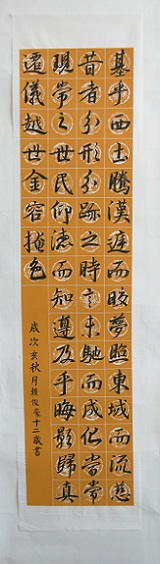 基乎西土騰漢庭而皎夢照東域而流慈
昔者分形分跡之時言未馳而成化當常
現常之世民仰德而知遵及乎晦影歸真
遷儀越世金容掩色
歲次亥秋月俊豪十二歲書